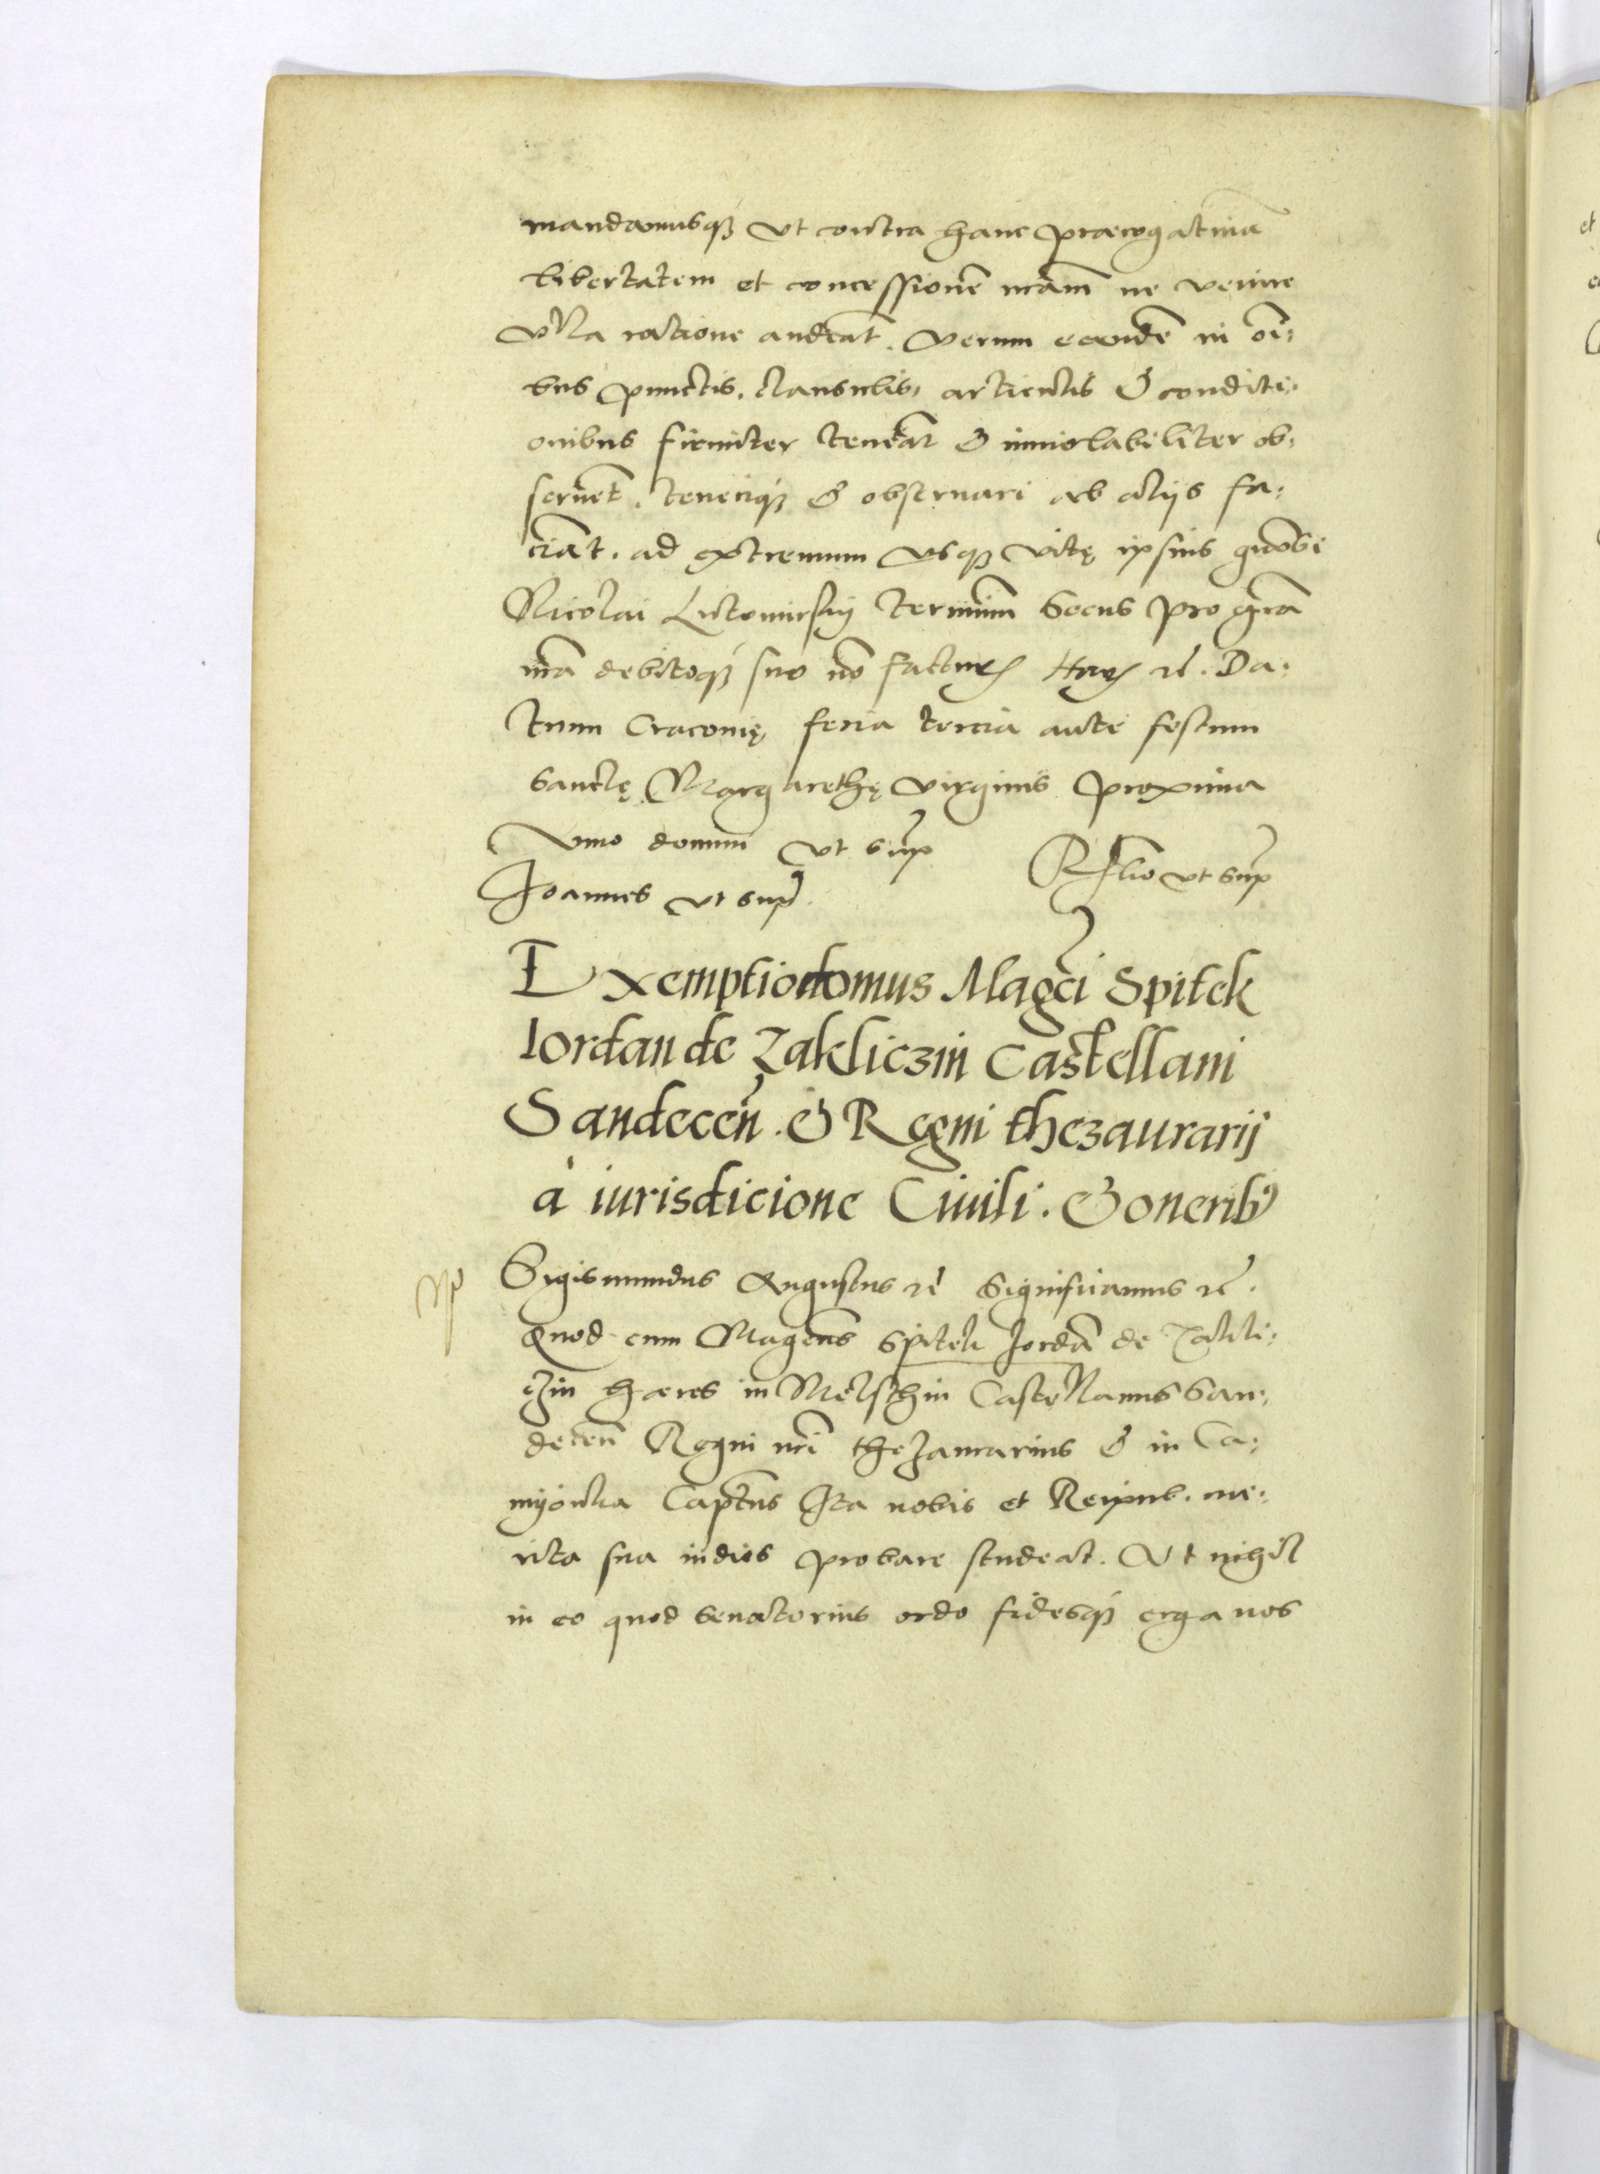 mandamusq3 vt contra hanc prærogatiuā
libertatem et concessionē nrām ne venire
vlla ratione audeāt. Verum eandē in oī:
bus punctis, clausulis, articulis & conditi:
onibus firmiter teneāt & inuiolabiliter ob:
seruēt. teneriq3 & obseruari ab alijs fa:
ciāt. ad extremum vsq3 vitę ipsius gnōsi
Nicolai Lutomirskij terminū Secus pro grā
nrā debitoq3 suo nō factur Har rē. Da:
tum Cracouię feria tercia ante festum
Sanctę Margarethę virginis proxima
Anno domini vt sup
Joannes vt sup.
Rlão vt sup
Exemptio domus Magci Spitek
Iordan de Zakliczin Castellani
Sandeceñ. & Regni thezaurarij
à iurisdicione Ciuili. & onerib9
Sigismundus Augustus rē Significamus rē.
Quod cum Magcus Spitek Jordā de Zakli:
czin hæres in Melschin Castellanus San:
deceñ Regni nrī thezaurarius & in Ca:
myonka Captūs Ita nobis et Reipub. me:
rita sua indies probare studeat. Vt nihil
in eo quod senatorius ordo fidesq3 erga nos